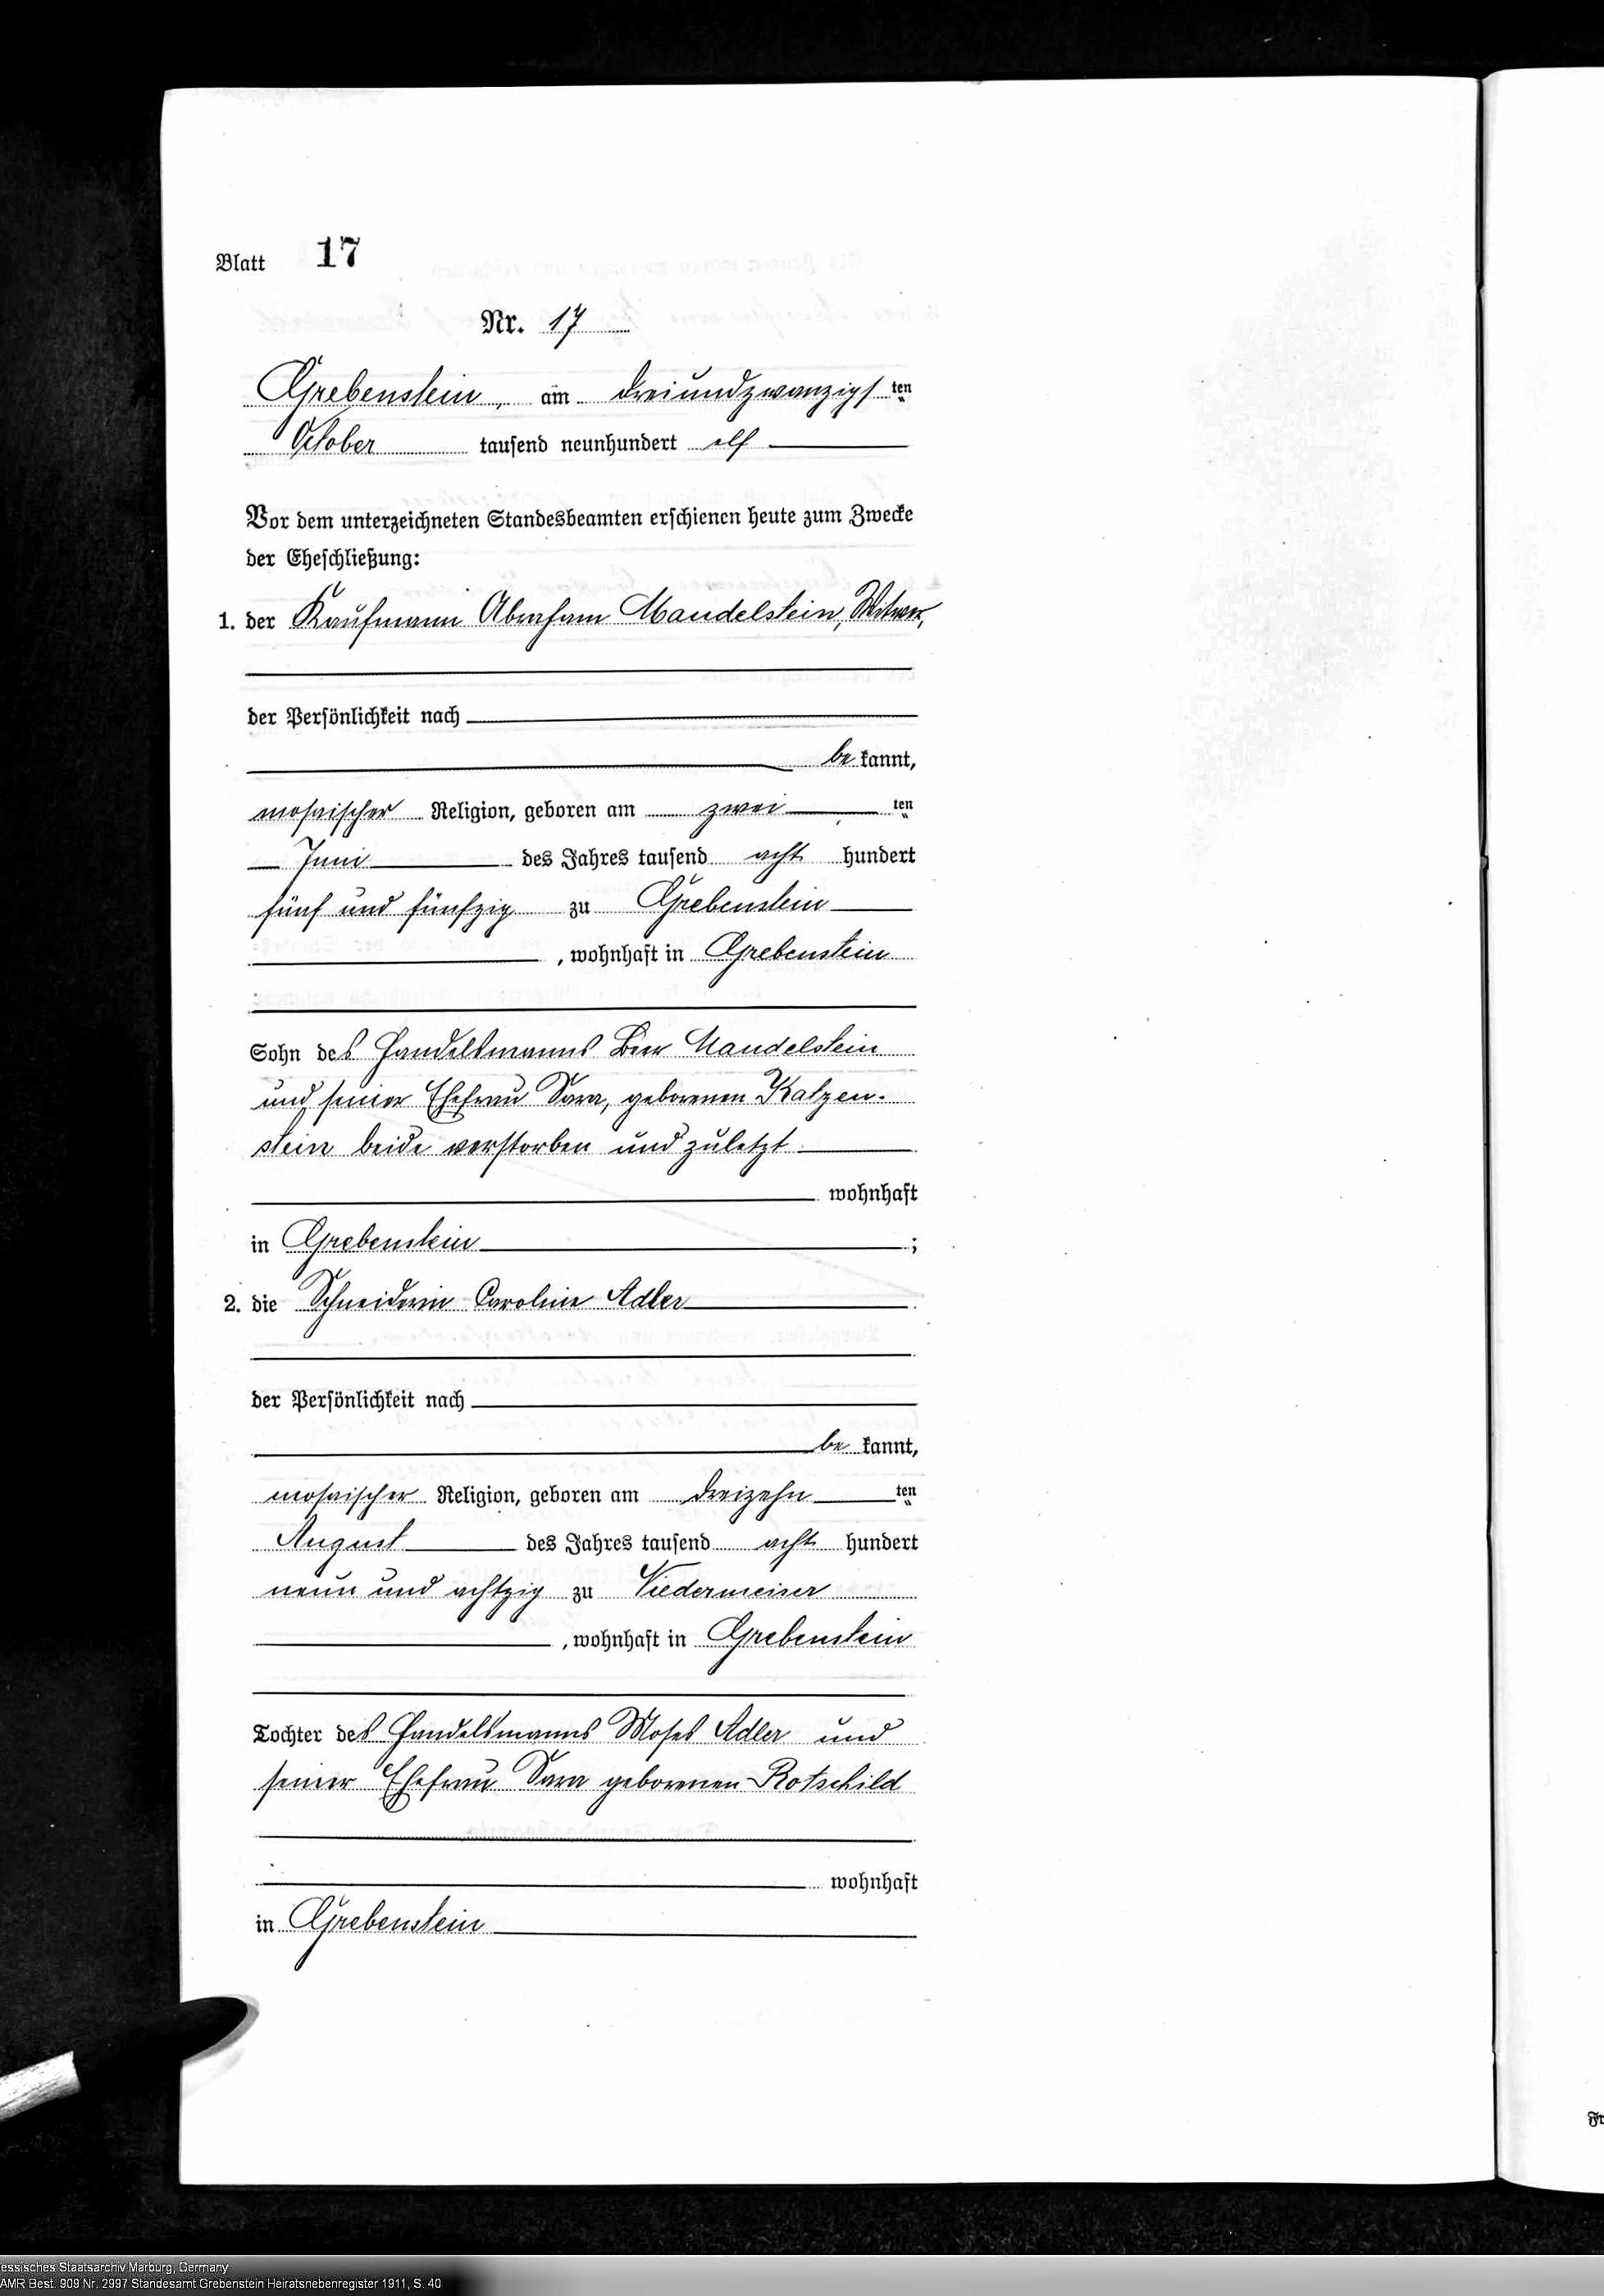 Blatt 17
Nr. 17
Grebenstein, am dreiundzwanzigsten
October tausend neunhundert elf
Vor dem unterzeichneten Standesbeamten erschienen heute zum Zwecke
der Eheschließung:
1. der Kaufmann Abraham Mandelstein, Witwer,
der Persönlichkeit nach
bekannt,
mosaischer Religion, geboren am zweiten
Juni des Jahres tausend acht hundert
fünf und fünfzig zu Grebenstein
, wohnhaft in Grebenstein
Sohn des Handelsmanns Beer Mandelstein
und seiner Ehefrau Sara, geborenen Katzen-
stein beide verstorben und zuletzt
wohnhaft
in Grebenstein ;
2. die Schneiderin Caroline Adler
der Persönlichkeit nach
bekannt,
mosaischer Religion, geboren am dreizehnten
August des Jahres tausend acht hundert
neun und achtzig zu Niedermeiser
, wohnhaft in Grebenstein
Tochter des Handelsmanns Moses Adler und
seiner Ehefrau Sara geborenen Rotschild
wohnhaft
in Grebenstein
essisches Staatsarchiv Marburg, Germany
AMR Best. 909 Nr. 2997 Standesamt Grebenstein Heiratsnebenregister 1911, S. 40